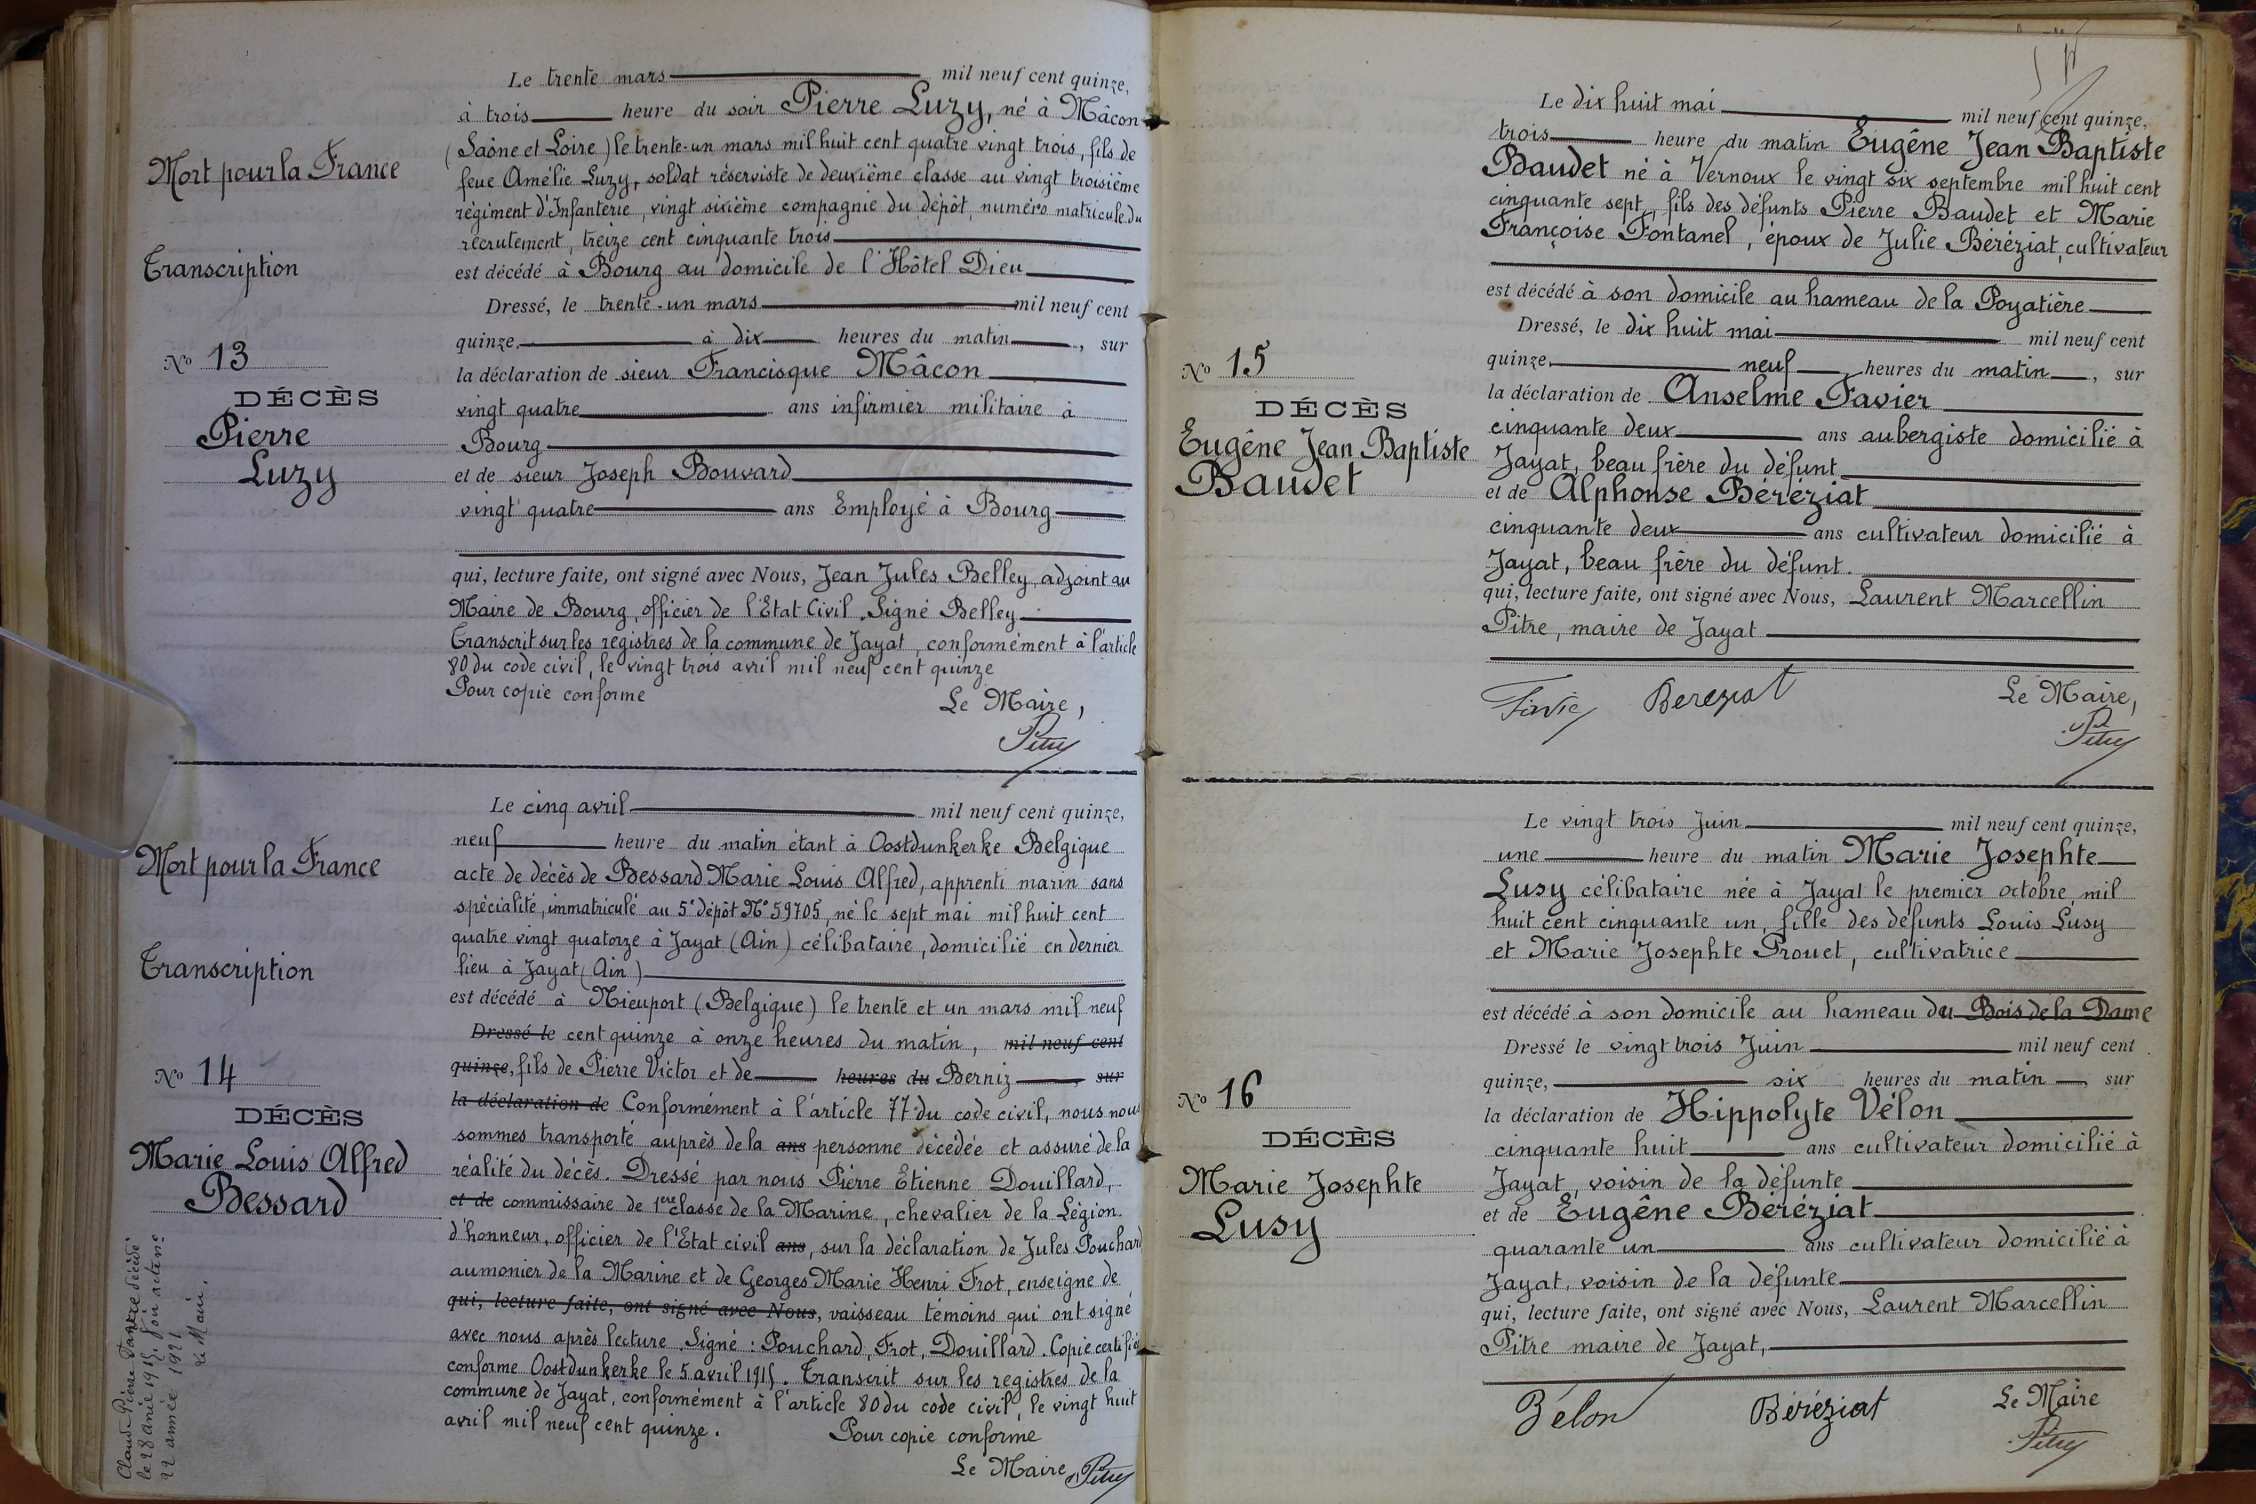 Mort pour la France
Transcription
Nº 13
DÉCÈS
Pierre
Luzy
Le trente mars mil neuf cent quinze,
à trois heure du soir Pierre Luzy, né à Mâcon
(Saône et Loire) le trente-un mars mil huit cent quatre vingt trois, fils de
feue Amélie Luzy, soldat réserviste de deuxième classe au vingt troisième
régiment d'Infanterie, vingt sixième compagnie du dépôt, numéro matricule du
recrutement, treize cent cinquante trois
est décédé à Bourg au domicile de l'Hôtel Dieu
Dressé, le trente-un mars mil neuf cent
quinze, à dix heures du matin, sur
la déclaration de sieur Francisque Mâcon
vingt quatre ans infirmier militaire à
Bourg
et de sieur Joseph Bouvard
vingt quatre ans Employé à Bourg
qui, lecture faite, ont signé avec Nous, Jean Jules Belley, adjoint au
Maire de Bourg, officier de l'Etat Civil. Signé Belley
Transcrit sur les registres de la commune de Jayat, conformément à l'article
80 du code civil, le vingt trois avril mil neuf cent quinze
Pour copie conforme
Le Maire,
Pitre
Mort pour la France
Transcription
Nº 14
DÉCÈS
Marie Louis Alfred
Bessard
Claude Pierre décédé
le 28 1915. Voir acte nº
22 année 1921
Le Maire.
Le cinq avril mil neuf cent quinze,
neuf heure du matin étant à Oostdunkerke Belgique
acte de décès de Bessard Marie Louis Alfred, apprenti marin sans
spécialité, immatriculé au 5e dépôt Nº 59705, né le sept mai mil huit cent
quatre vingt quatorze à Jayat (Ain) célibataire, domicilié en dernier
lieu à Jayat (Ain)
est décédé à Nieuport (Belgique) le trente et un mars mil neuf
Dressé le cent quinze à onze heures du matin, mil neuf cent
quinze, fils de Pierre Victor et de heures du Berniz, sur
la déclaration de Conformément à l'article 77 du code civil, nous nous
sommes transporté auprès de la ans personne décédée et assuré de la
réalité du décès. Dressé par nous Pierre Etienne Douillard,
et de commissaire de 1ere classe de la Marine, chevalier de la Légion
d'honneur, officier de l'Etat civil ans, sur la déclaration de Jules Pouchard
aumonier de la Marine et de Georges Marie Henri Frot, enseigne de
qui, lecture faite, ont signé avec Nous, vaisseau témoins qui ont signé
avec nous après lecture. Signé : Pouchard, Frot, Douillard. Copie certifiée
conforme Oostdunkerke le 5 avril 1915. Transcrit sur les registres de la
commune de Jayat, conformément à l'article 80 du code civil, le vingt huit
avril mil neuf cent quinze.
Pour copie conforme
Le Maire, Pitre
Nº 15
DÉCÈS
Eugêne Jean Baptiste
Baudet
Le dix huit mai mil neuf cent quinze,
trois heure du matin Eugêne Jean Baptiste
Baudet né à Vernoux le vingt six septembre mil huit cent
cinquante sept, fils des défunts Pierre Baudet et Marie
Françoise Fontanel, époux de Julie Béréziat, cultivateur
est décédé à son domicile au hameau de la Poyatière
Dressé, le dix huit mai mil neuf cent
quinze, neuf heures du matin, sur
la déclaration de Anselme Favier
cinquante deux ans aubergiste domicilié à
Jayat, beau frère du défunt
et de Alphonse Béréziat
cinquante deux ans cultivateur domicilié à
Jayat, beau frère du défunt.
qui, lecture faite, ont signé avec Nous, Laurent Marcellin
Pitre, maire de Jayat
Favier Bereziat
Le Maire,
Pitre
Nº 16
DÉCÈS
Marie Josephte
Lusy
Le vingt trois Juin mil neuf cent quinze,
une heure du matin Marie Josephte
Lusy célibataire née à Jayat le premier octobre mil
huit cent cinquante un, fille des défunts Louis Lusy
et Marie Josephte Prouet, cultivatrice
est décédé à son domicile au hameau du Bois de la Dame
Dressé le vingt trois Juin mil neuf cent
quinze, six heures du matin, sur
la déclaration de Hippolyte Vélon
cinquante huit ans cultivateur domicilié à
Jayat, voisin de la défunte
et de Eugêne Béréziat
quarante un ans cultivateur domicilié à
Jayat, voisin de la défunte
qui, lecture faite, ont signé avec Nous, Laurent Marcellin
Pitre maire de Jayat,
Vélon Béréziat
Le Maire
Pitre